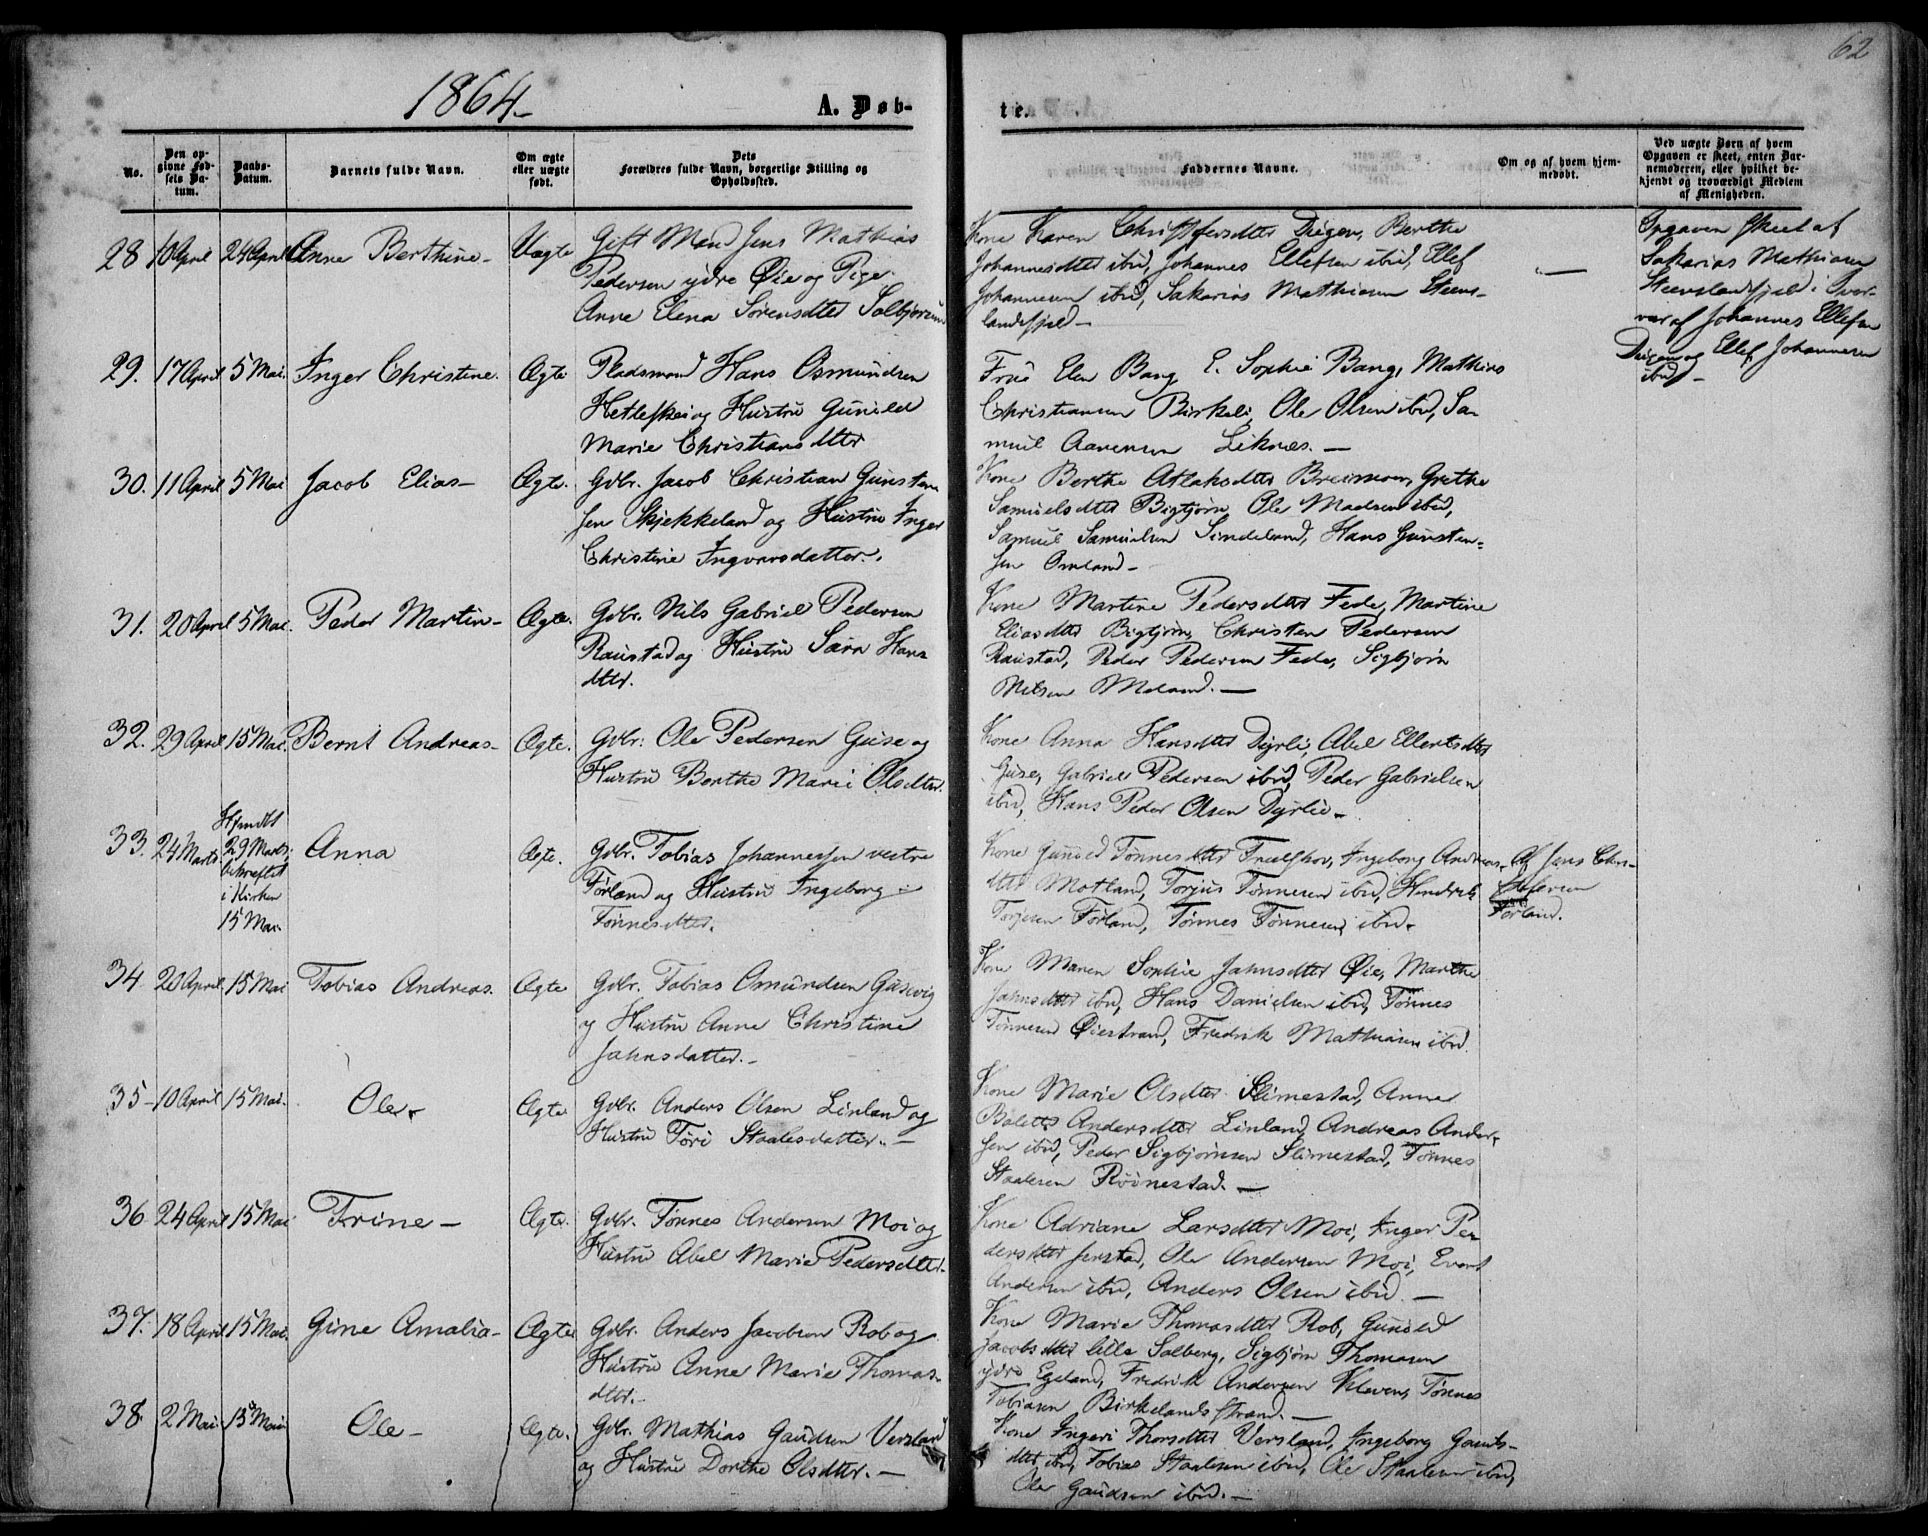 62
1864-
A. Døb-
te.
No.
Den op-
givne Fød-
sels Da-
tum.
Daabs-
Datum.
Barnets fulde Navn.
Om ægte
eller uægte
født.
Dets
Forældres fulde Navn, borgerlige Stilling og
Opholdssted.
Faddernes Navne.
Om og af hvem hjem-
medøbt.
Ved uægte Børn af hvem
Opgaven er skeet, enten Bar-
nemoderen, eller hvilket be-
kjendt og troværdigt Medlem
af Menigheden.
28 10 April 24 April Anne Berthine- Uægte
Gift Mand Jens Mathias
Pedersen ydre Øie og Pige
Anne Elena Sørensdtter Solbjør
Kone Karen Christofersdtter Dugen, Berthe
Johannesdtter ibid, Johannes Ellefsen ibid, Ellef
Johannesen ibid, Sakarias Mathiasen Steens-
landsfjeld-
—
Opgaven skeet af
Sakarias Mathiasen
Steenslandsfjeld i Over-
vær af Johannes Ellefsen
Dugen og Ellef Johannesen
ibid-
29. 17 April 5 Mai. Inger Christine. Ægte
Pladsmand Hans Osmundsen
Hetleskei og Hustru Gunild
Marie Christiansdtter
Frue Elen Bang, E. Sophie Bang, Mathias
Christiansen Birkeli, Ole Olsen ibid, Sa-
muel Aanensen Liknes.-
30. 11 April 5 Mai Jacob Elias- Ægte.
Gdbr. Jacob Christian Gunsten
sen Skjekkeland og Hustru Inger
Christine Ingvarsdatter.
Kone Berthe Atlaksdtter Breimoen, Grethe
Samuelsdtter Bigtjørn, Ole Madsen ibid,
Samuel Samuelsen Sindeland, Hans Gunsten-
sen Omland-
31. 20 April 5 Mai. Peder Martin- Ægte.
Gdbr. Nils Gabriel Pedersen
Raustad og Hustru Sara Hans
dtter.
Kone Martine Pedersdtter Fede, Martine
Eliasdtter Bigtjørn, Christen Pedersen
Raustad, Peder Pedersen Fede, Sigbjørn
Nilsen Moland.-
32. 29 April 15 Mai. Bernt Andreas- Ægte.
Gdbr. Ole Pedersen Guse og
Hustru Berthe Marie Olsdtter.
Kone Anna Hansdtter Dyrli, Abel Ellertsdtter
Guse, Gabriel Pedersen ibid, Peder Gabrielsen
ibid, Hans Peder Olsen Dyrlie-
33. 24 Marts. Anna Ægte.
Hjemdbt
29 Marts,
bekræftet
i Kirken
15 Mai.
Gdbr. Tobias Johannessen vestre
Førland og Hustru Ingeborg
Tønnesdtter.
Kone Gunild Tønnesdtter Fuelshov, Ingeborg Andreas-
dtter Motland, Torjus Tønnesen ibid, Hendrik
Torjesen Førland, Tønnes Tønnesen ibid.
Af Jens Chri-
Førland.
34 20 April 15 Mai Tobias Andreas. Ægte
Gdbr. Tobias Omundsen Gasevig
og Hustru Anne Christine
Jahnsdatter.-
Kone Maren Sophie Jahnsdtter Øie, Marthe
Jahnsdtter ibid, Hans Danielsen ibid, Tønnes
Tønnesen Øiestrand, Fredrik Mathiasen ibid.
35- 10 April 15 Mai. Ole- Ægte
Gdbr. Anders Olsen Linland og
Hustru Tøri Staalesdatter.-
Kone Marie Olsdtter Slimestad, Anne
Bolette Andersdtter Linland, Andreas Ander-
sen ibid, Peder Sigbjørnsen Slimestad, Tønnes
Staalesen Röinestad.-
36 24 April 15 Mai Trine- Ægte.
Gdbr. Tønnes Andersen Moi og
Hustru Abel Marie Pedersdtter.
Kone Adriane Larsdtter Moi, Inger Pe-
dersdtter Jerstad, Ole Andersen Moi, Evert
Andersen ibid, Anders Olsen ibid.-
37. 18 April 15 Mai. Gine Amalia- Ægte
Gdbr. Anders Jacobsen Rob og
Hustru Anne Marie Thomas-
dtter.-
Kone Marie Thomasdtter Rob, Gunild
Jacobsdtter lille Solberg, Sigbjørn Thomasen
ydre Egeland, Fredrik Andersen Kleven, Tønnes
Tobiasen Birkelandsstrand.-
38. 2 Mai 15 Mai Ole- Ægte.
Gdbr. Mathias Gaudsen Versland
og Hustru Dorthe Olsdtter.-
Kone Ingeri Thorsdtter Versland, Ingeborg Gauds-
dtter ibid, Tobias Staalesen ibid, Ole Staalesen ibid,
Ole Gaudsen ibid.-